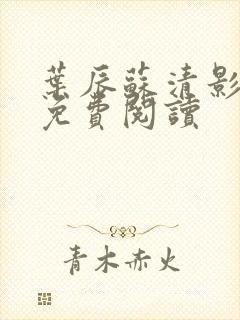 葉辰蘇清影
免費閱讀
青木赤火